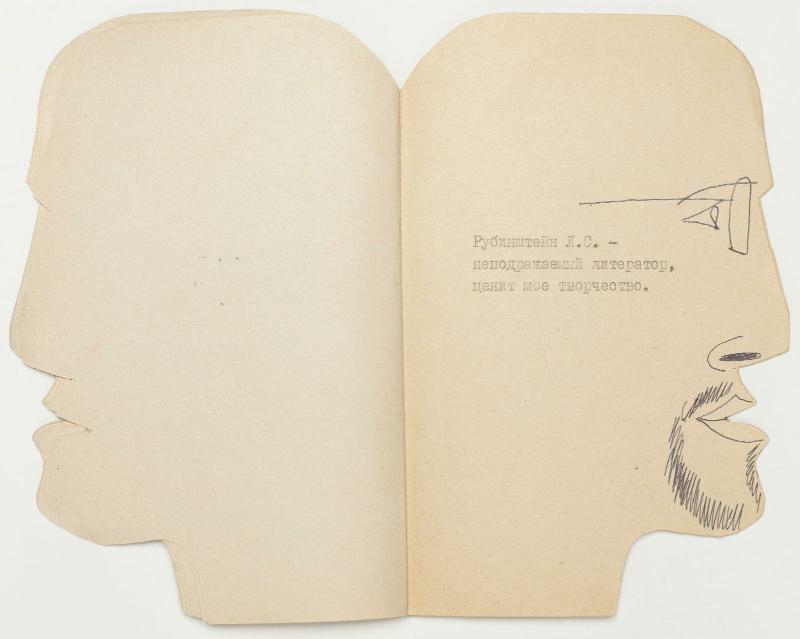 Рубинштейн Л.С. –
неподражаемый литератор,
ценит мое творчество.